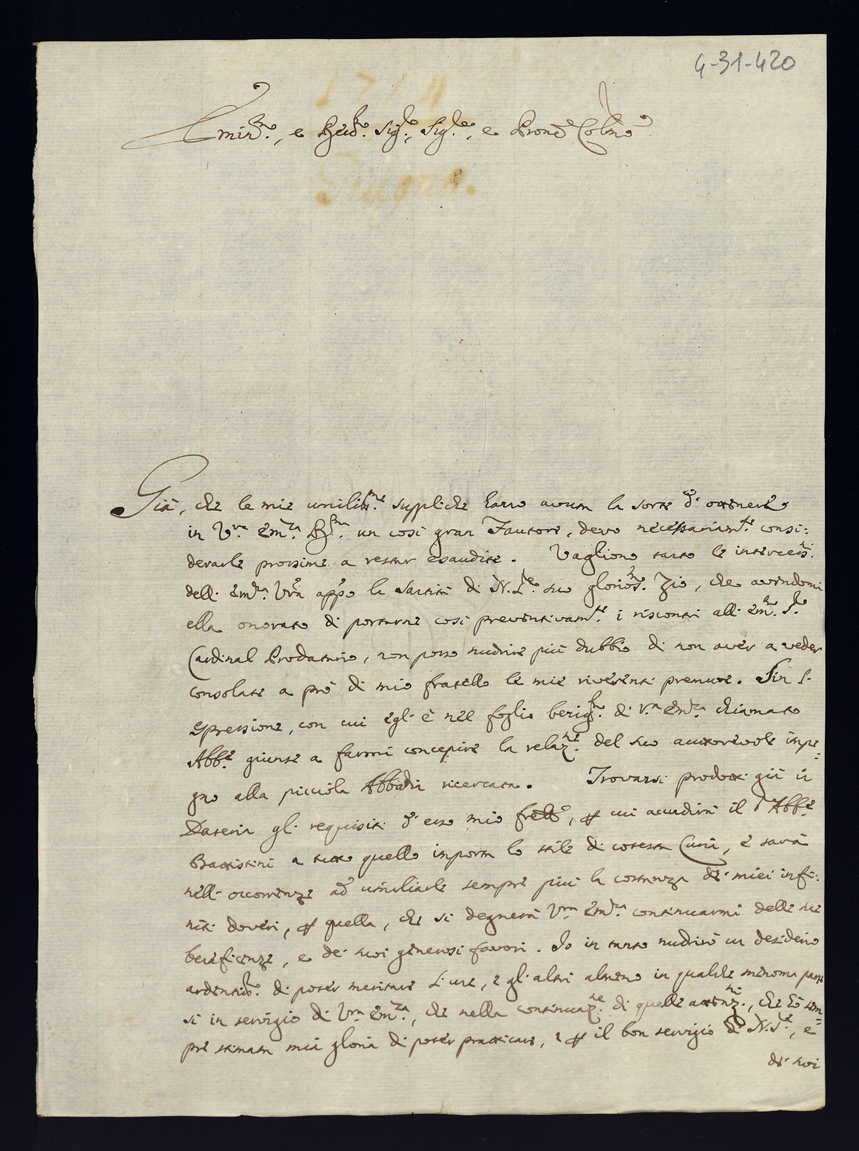 4-31-420
1774
Emin.mo, e Rev.mo Sig.re, Sig.re, e Prone Colmo
Giugno.
Già, che le mie umiliss.me suppliche hanno avuta la sorte d'ottenere
in V.ra Em.za Rma. un così gran Fautore, devo necessariam.te consi:
derarle prossime a restar esaudite. Vagliono tanto le intercess.ni
dell' Em.za Vra app.o la Santità di N. S.re suo glorios.mo Zio, che avendomi
ella onorato di portarne così preventivam.te i riscontri all' Em.mo S.r
Cardinal Prodatario, non posso nudrire più dubbio di non aver a veder
consolate a prò di mio fratello le mie riverenti premure. Sin l'
espressione, con cui egli è nel foglio benig.mo di V.ra Em.za chiamato
Abb.e giunse a farmi concepire la relaz.ne del suo autorevole impe=
gno alla piccola Abbadia ricercata. Trovansi prodotti già in
Dataria gl' requisiti d'esso mio frello, per cui accudirà il S.r Abb.e
Battistini a tutto quello importa lo stile di cotesta Curia, e sarà
nell' occorrenze ad umiliarle sempre più la costanza de' miei infi:
niti doveri, per quella, che si degnerà V.ra Em.za continuarmi delle sue
beneficenze, e de' suoi generosi favori. Io in tanto nudrirò un desiderio
ardentiss.o di poter meritare l'une, e gli altri almeno in qualche minoma parte
si in servigio di V.ra Em.za, che nella continuaz.ne di quelle attenz.ni, che hò sem=
pre stimata mia gloria di poter pratticare, e per il bon servigio di N. S.re, e
de' suoi